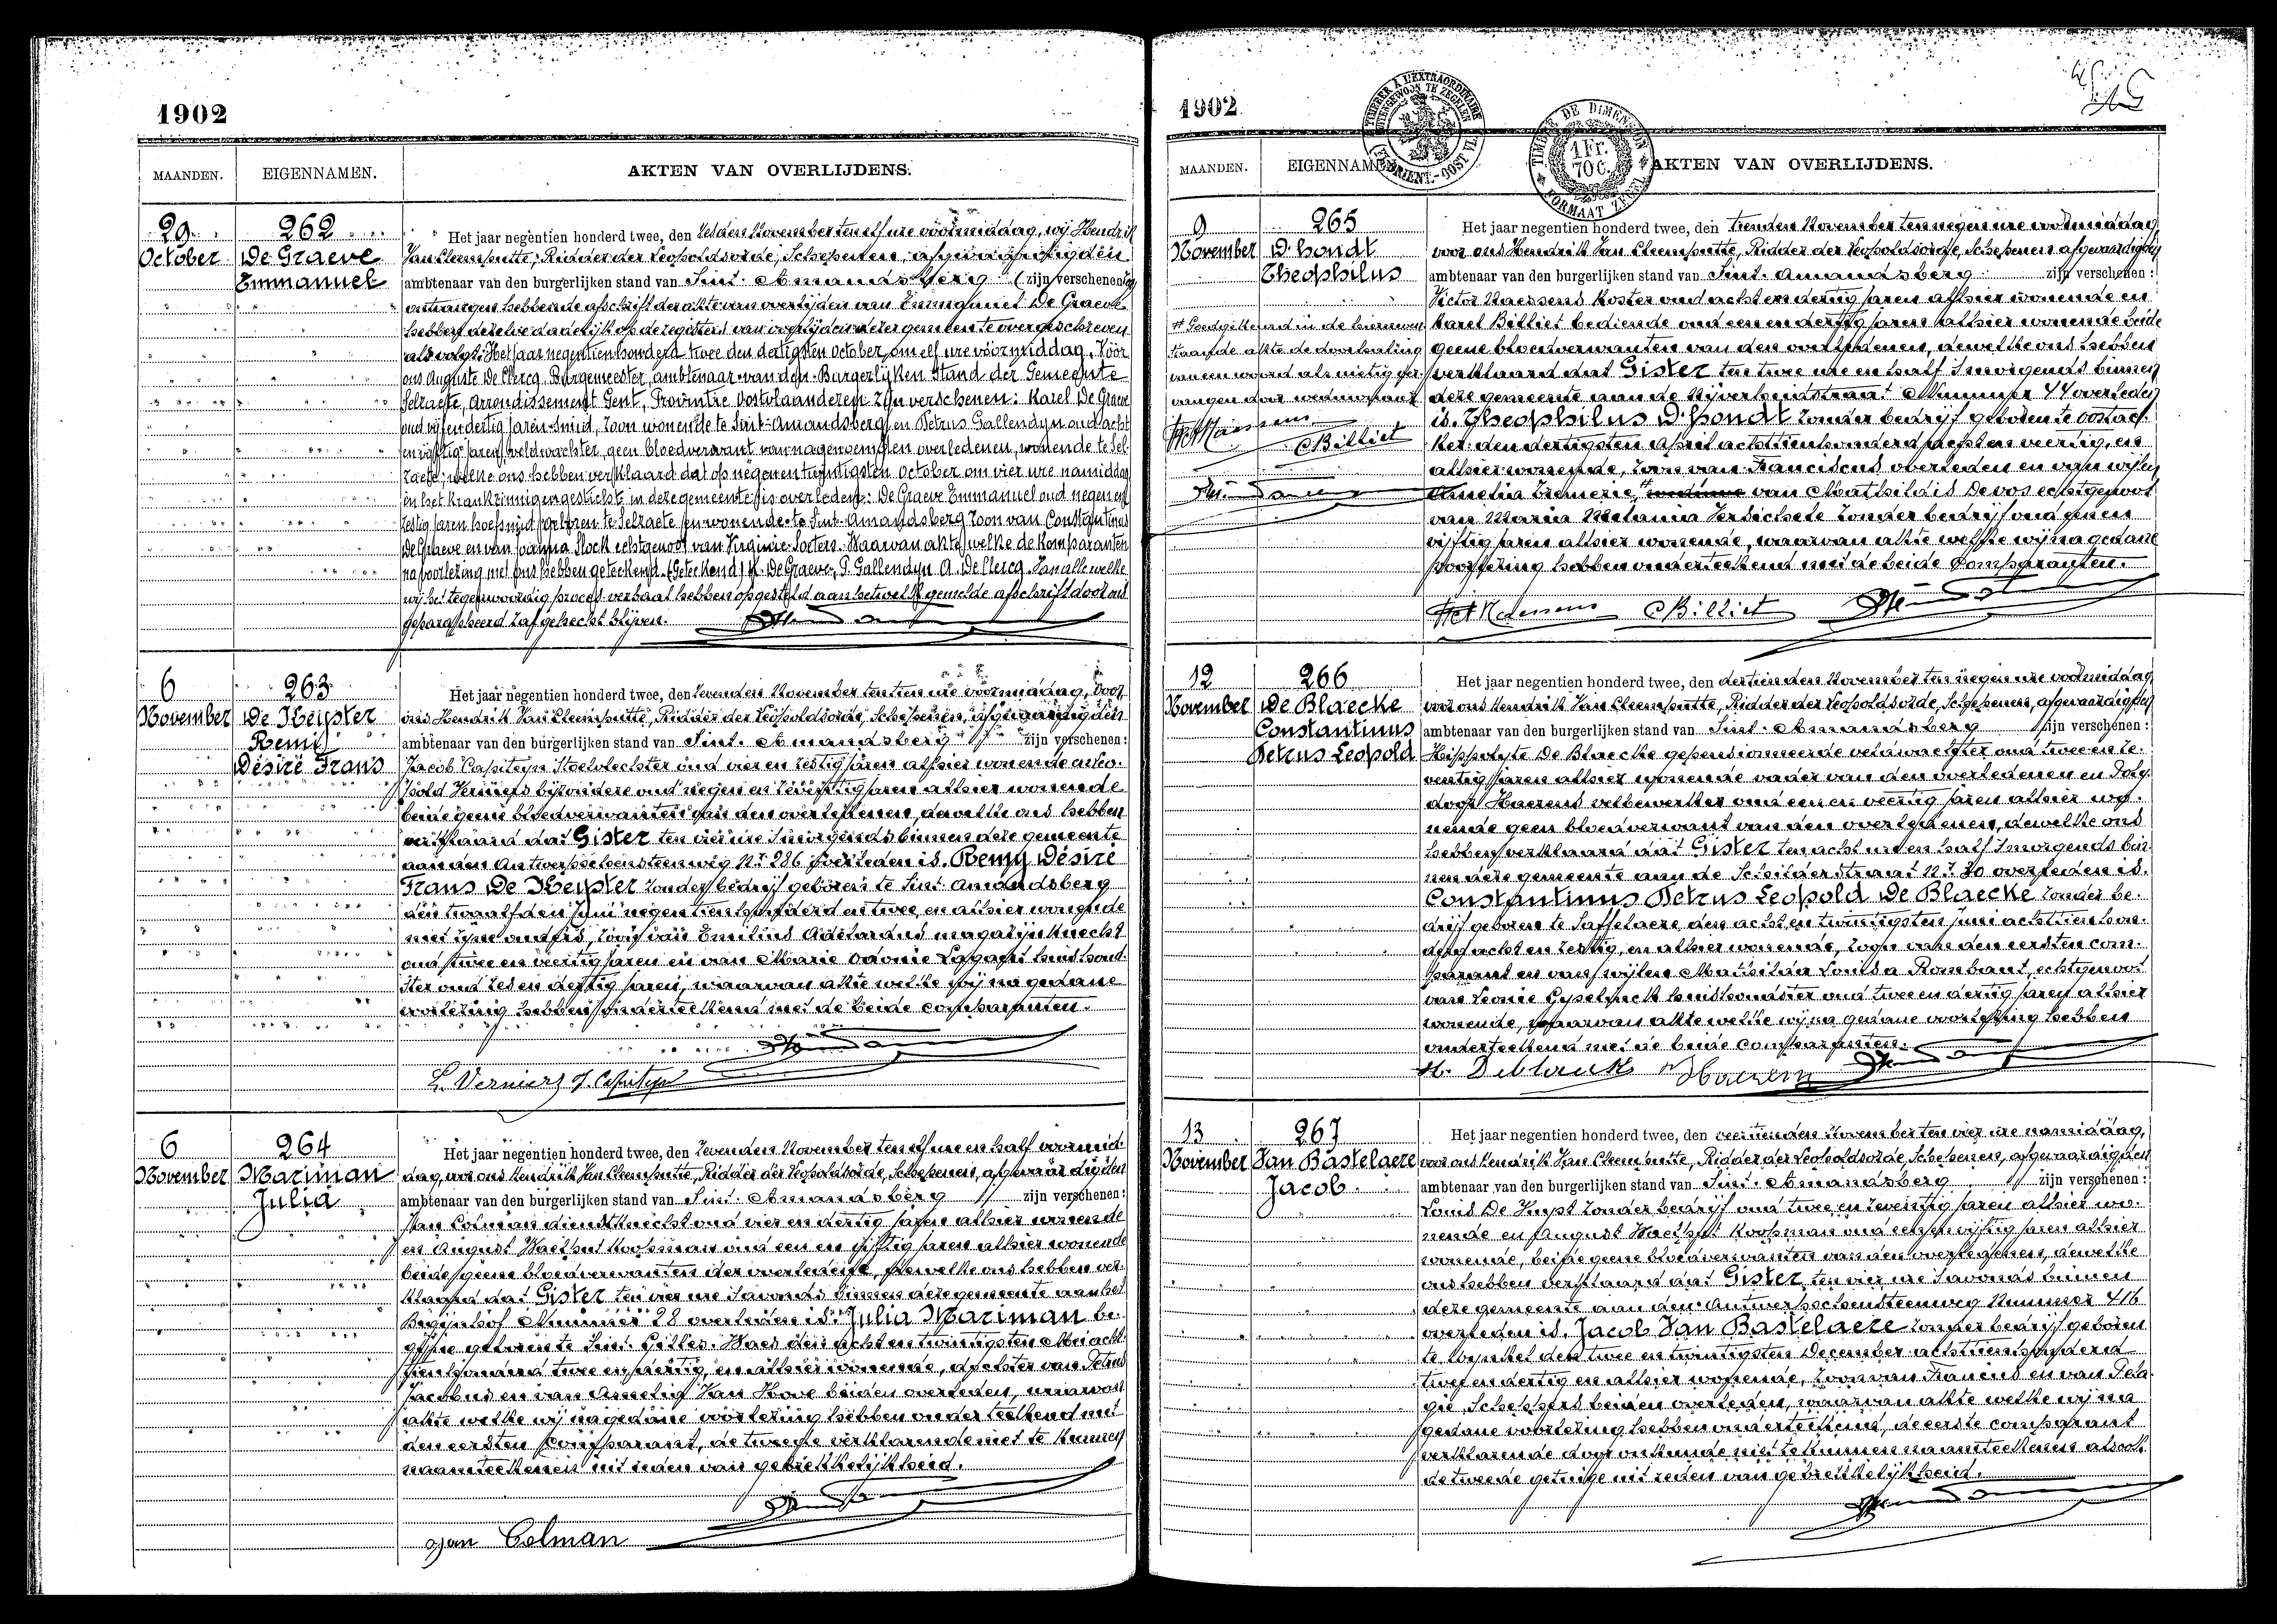 1902
MAANDEN. EIGENNAMEN. AKTEN VAN OVERLIJDENS.
29 October
262
De Graeve
Emmanuel
Het jaar negentien honderd twee, den zesden November ten elf ure voormiddag, wij Hendrik
Van Cleemputte, Ridder der Leopoldsorde, Schepenen, afgevaardigden
ambtenaar van den burgerlijken stand van Sint-Amandsberg (zijn verschenen)
ontvangen hebbende afschrift der akte van overlijden van Emmanuel De Graeve
hebben dezelve dadelijk op de registers van overlijden dezer gemeente overgeschreven
als volgt: Het jaar negentien honderd twee den dertigsten October, om elf ure voormiddag. Vóór
ons Auguste De Clercq, Burgemeester, ambtenaar van den Burgerlijken Stand der Gemeente
Selzaete, Arrondissement Gent, Provintie Oostvlaanderen zijn verschenen: Karel De Graeve
oud vijf en dertig jaren smid, zoon wonende te Sint-Amandsberg en Petrus Gallendyn oud acht
en vijftig jaren, veldwachter, geen bloedverwant van nagenoemden overledenen, wonende te Sel-
zaete; welke ons hebben verklaard dat op negenentwintigsten October om vier ure namiddag
in het Krankzinnigengesticht in deze gemeente is overleden: De Graeve Emmanuel oud negen en
zestig jaren hoefsmid geboren te Selzaete en wonende te Sint-Amandsberg zoon van Constantinus
De Graeve en van Joanna Stock echtgenoot van Virginie Soeters. Waarvan akte, welke de komparanten
na voorlezing met ons hebben geteekend. (Geteekend) K. De Graeve, P. Gallendyn A. De Clercq. Van alle welke
wij het tegenwoordig proces-verbaal hebben opgesteld aan hetwelk gemelde afschrift door ons
geparapheerd zal gehecht blijven.
6 November
263
De Keyster
Remi
Désiré Frans
Het jaar negentien honderd twee, den zevenden November ten tien ure voormiddag, voor
ons Hendrik Van Cleemputte, Ridder der Leopoldsorde, Schepenen, afgevaardigden
ambtenaar van den burgerlijken stand van Sint-Amandsberg zijn verschenen:
Jacob Capiteyn Stoelvlechter oud vier en zestig jaren alhier wonende en Leo-
pold Verniers bijzondere oud negen en zeventig jaren alhier wonende
beide geene bloedverwanten van den overledenen, dewelke ons hebben
verklaard dat Gister ten vier ure 's morgends binnen deze gemeente
aan den Antwerpschensteenweg Nr 286 overleden is. Remy Désiré
Frans De Keyster zonder bedrijf geboren te Sint-Amandsberg
den twaalfden Juni negentien honderd en twee, en alhier wonende
met zijne ouders, zoon van Emilius Adelardus magazijnknecht
oud twee en veertig jaren en van Marie Odonie huishoud-
ster oud zes en dertig jaren, waarvan akte welke wij na gedane
voorlezing hebben onderteekend met de beide comparanten.
L. Verniers J. Capiteyn
6 November
264
Mariman
Julia
Het jaar negentien honderd twee, den zevenden November ten elf ure en half voormid-
dag, voor ons Hendrik Van Cleemputte, Ridder der Leopoldsorde, Schepenen, afgevaardigden
ambtenaar van den burgerlijken stand van Sint-Amandsberg zijn verschenen:
Jan Colman dienstknecht oud vier en dertig jaren alhier wonende
en August Waelput Koopman oud een en vijftig jaren alhier wonende
beide geene bloedverwanten der overledene, dewelke ons hebben ver-
klaard dat Gister ten vier ure 's avonds binnen deze gemeente aan het
Begijnhof Nummer 28 overleden is. Julia Mariman be-
gijne geboren te Sint-Gilles-Waes den acht en twintigsten Mei acht-
tienhonderd twee en dertig, en alhier wonende, dochter van Petrus
Jacobus en van Amelia Van Hove beiden overleden, waarvan
akte welke wij na gedane voorlezing hebben onderteekend met
den eersten comparant, de tweede verklarende niet te kunnen
naamteekenen uit reden van gebrekkelijkheid.
Jan Colman
1902
TIMBRE À L'EXTRAORDINAIRE
BUITENGEWOON TE ZEGELEN
TIMBRE DE DIMENSION
1 Fr.
70 C.
FORMAAT ZEGEL
MAANDEN. EIGENNAMEN. AKTEN VAN OVERLIJDENS.
9 November
265
D'hondt
Theophilus
Goedgekeurd in de hiernevens
staande akte de doorhaling
van een woord als nietig
Billiet
Het jaar negentien honderd twee, den tienden November ten negen ure voormiddag
voor ons Hendrik Van Cleemputte, Ridder der Leopoldsorde, Schepenen afgevaardigden
ambtenaar van den burgerlijken stand van Sint-Amandsberg zijn verschenen:
Victor Maessens Koster oud acht en dertig jaren alhier wonende en
Karel Billiet bediende oud een en dertig jaren alhier wonende beide
geene bloedverwanten van den overledenen, dewelke ons hebben
verklaard dat Gister ten twee ure en half 's morgends binnen
deze gemeente aan de Nijverheidstraat Nummer 44 overleden
is. Theophilus D'hondt zonder bedrijf geboren te Oostac-
ker den dertigsten April achttienhonderd en veertig, en
alhier wonende, zoon van Franciscus overleden en van wijlen
Amelia weduwe van Mathildis Devos echtgenoot
van Maria Melania Versichele zonder bedrijf oud
vijftig jaren alhier wonende, waarvan akte welke wij na gedane
voorlezing hebben onderteekend met de beide Comparanten.
Billiet
12 November
266
De Blaecke
Constantinus
Petrus Leopold
Het jaar negentien honderd twee, den dertienden November ten negen ure voormiddag
voor ons Hendrik Van Cleemputte, Ridder der Leopoldsorde, Schepenen, afgevaardigden
ambtenaar van den burgerlijken stand van Sint-Amandsberg zijn verschenen:
Hippolyte De Blaecke gepensionneerde veldwachter oud twee en ze-
ventig jaren alhier wonende vader van den overledenen en Poly-
door Haerens oud een en veertig jaren alhier wo-
nende geen bloedverwant van den overledenen, dewelke ons
hebben verklaard dat Gister ten acht ure en half 's morgends bin-
nen deze gemeente aan de Schilderstraat Nr 30 overleden is.
Constantinus Petrus Leopold De Blaecke zonder be-
drijf geboren te Saffelaere den acht en twintigsten Juni achttienhon-
derd acht en zestig, en alhier wonende, zoon van den eersten com-
parant en van wijlen Mathilda Louisa Rombaut, echtgenoot
van Leonie Gyselinck huishoudster oud twee en dertig jaren alhier
wonende, waarvan akte welke wij na gedane voorlezing hebben
onderteekend met de beide comparanten.
13 November
267
Van Bastelaere
Jacob
Het jaar negentien honderd twee, den veertienden November ten vier ure namiddag,
voor ons Hendrik Van Cleemputte, Ridder der Leopoldsorde, Schepenen, afgevaardigden
ambtenaar van den burgerlijken stand van Sint-Amandsberg zijn verschenen:
Louis De Kuyst zonder bedrijf oud twee en zeventig jaren alhier wo-
nende en August Waelput Koopman oud een en vijftig jaren alhier
wonende, beide geene bloedverwanten van den overledenen, dewelke
ons hebben verklaard dat Gister ten vier ure 's avonds binnen
deze gemeente aan den Antwerpschensteenweg Nummer 416
overleden is. Jacob Van Bastelaere zonder bedrijf geboren
te den twee en twintigsten December achttienhonderd
twee en dertig en alhier wonende, zoon van Francus en van Pela-
gie Scheppers beiden overleden, waarvan akte welke wij na
gedane voorlezing hebben onderteekend, de eerste comparant
verklarende door onkunde niet te kunnen naamteekenen alsook
de tweede getuige uit reden van gebrekkelijkheid.